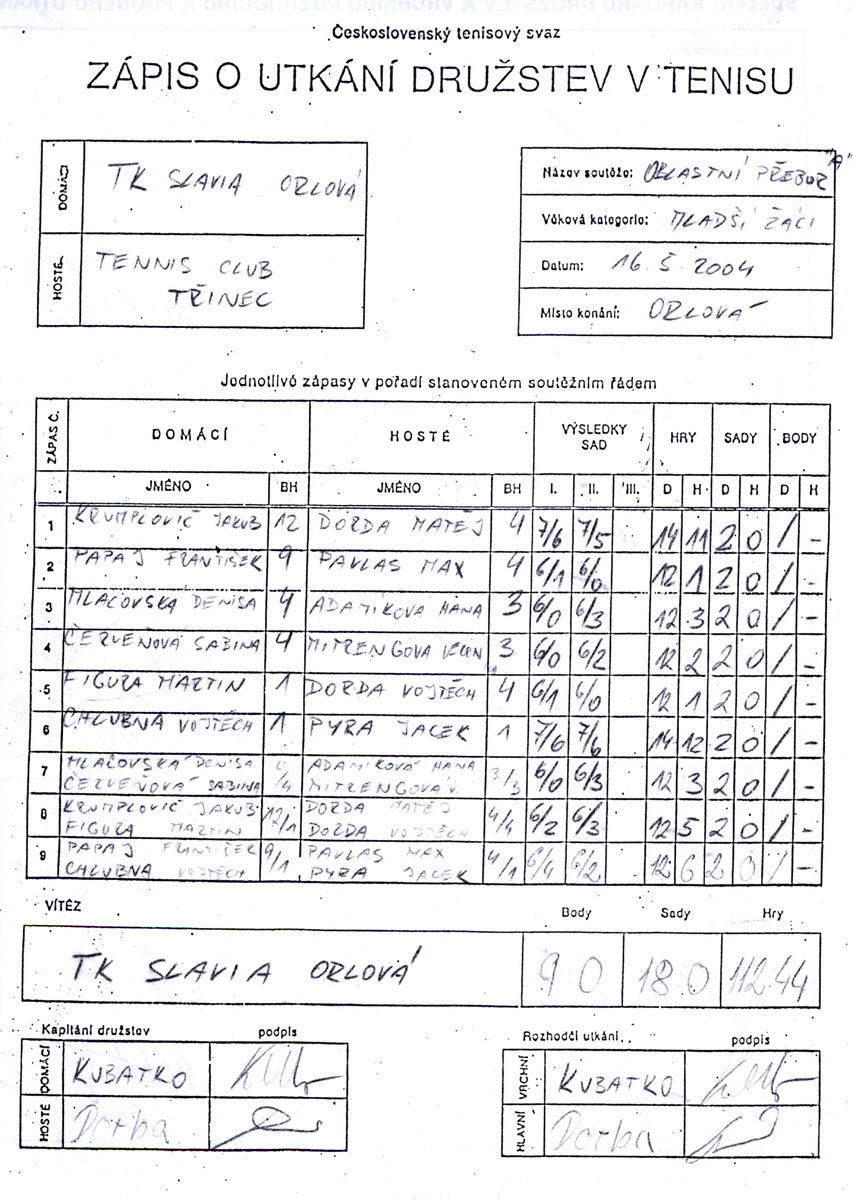 Československý tenisový svaz
ZÁPIS O UTKÁNÍ DRUŽSTEV V TENISU
DOMÁCÍ TK SLAVIA ORLOVÁ
HOSTÉ TENNIS CLUB
TŘINEC
Název soutěže: OBLASTNÍ PŘEBOR "A"
Věková kategorie: MLADŠÍ ŽÁCI
Datum: 16. 5. 2004
Místo konání: ORLOVÁ
Jednotlivé zápasy v pořadí stanoveném soutěžním řádem
ZÁPAS Č. DOMÁCÍ HOSTÉ VÝSLEDKY SAD HRY SADY BODY
JMÉNO BH JMÉNO BH I. II. III. D H D H D H
1 KRUMPLOVIČ JAKUB 12 DORDA MATĚJ 4 7/6 7/5 14 11 2 0 / -
2 PAPAJ FRANTIŠEK 9 PAVLAS MAX 4 6/1 6/0 12 1 2 0 / -
3 MLAČOVSKÁ DENISA 4 ADAMÍKOVÁ HANA 3 6/0 6/3 12 3 2 0 / -
4 ČERVEŇOVÁ SABINA 4 MITRENGOVÁ 3 6/0 6/2 12 2 2 0 / -
5 FIGURA MARTIN 1 DORDA VOJTĚCH 4 6/1 6/0 12 1 2 0 / -
6 CHLUBNA VOJTĚCH 1 PYRA JACEK 1 7/6 7/6 14 12 2 0 / -
7 MLAČOVSKÁ DENISA ADAMÍKOVÁ HANA 3/3 6/0 6/3 12 3 2 0 / -
ČERVEŇOVÁ SABINA /4 MITRENGOVÁ V.
8 KRUMPLOVIČ JAKUB 12/1 DORDA MATĚJ 4/4 6/2 6/3 12 5 2 0 / -
FIGURA MARTIN DORDA VOJTĚCH
9 PAPAJ FRANTIŠEK 9/1 PAVLAS MAX 4/1 6/4 6/2 12 6 2 0 / -
CHLUBNA VOJTĚCH PYRA JACEK
VÍTĚZ Body Sady Hry
TK SLAVIA ORLOVÁ 9 0 18 0 112 44
Kapitáni družstev podpis Rozhodčí utkání podpis
DOMÁCÍ KUBATKO VRCHNÍ KUBATKO
HOSTÉ Dorba HLAVNÍ Dorba